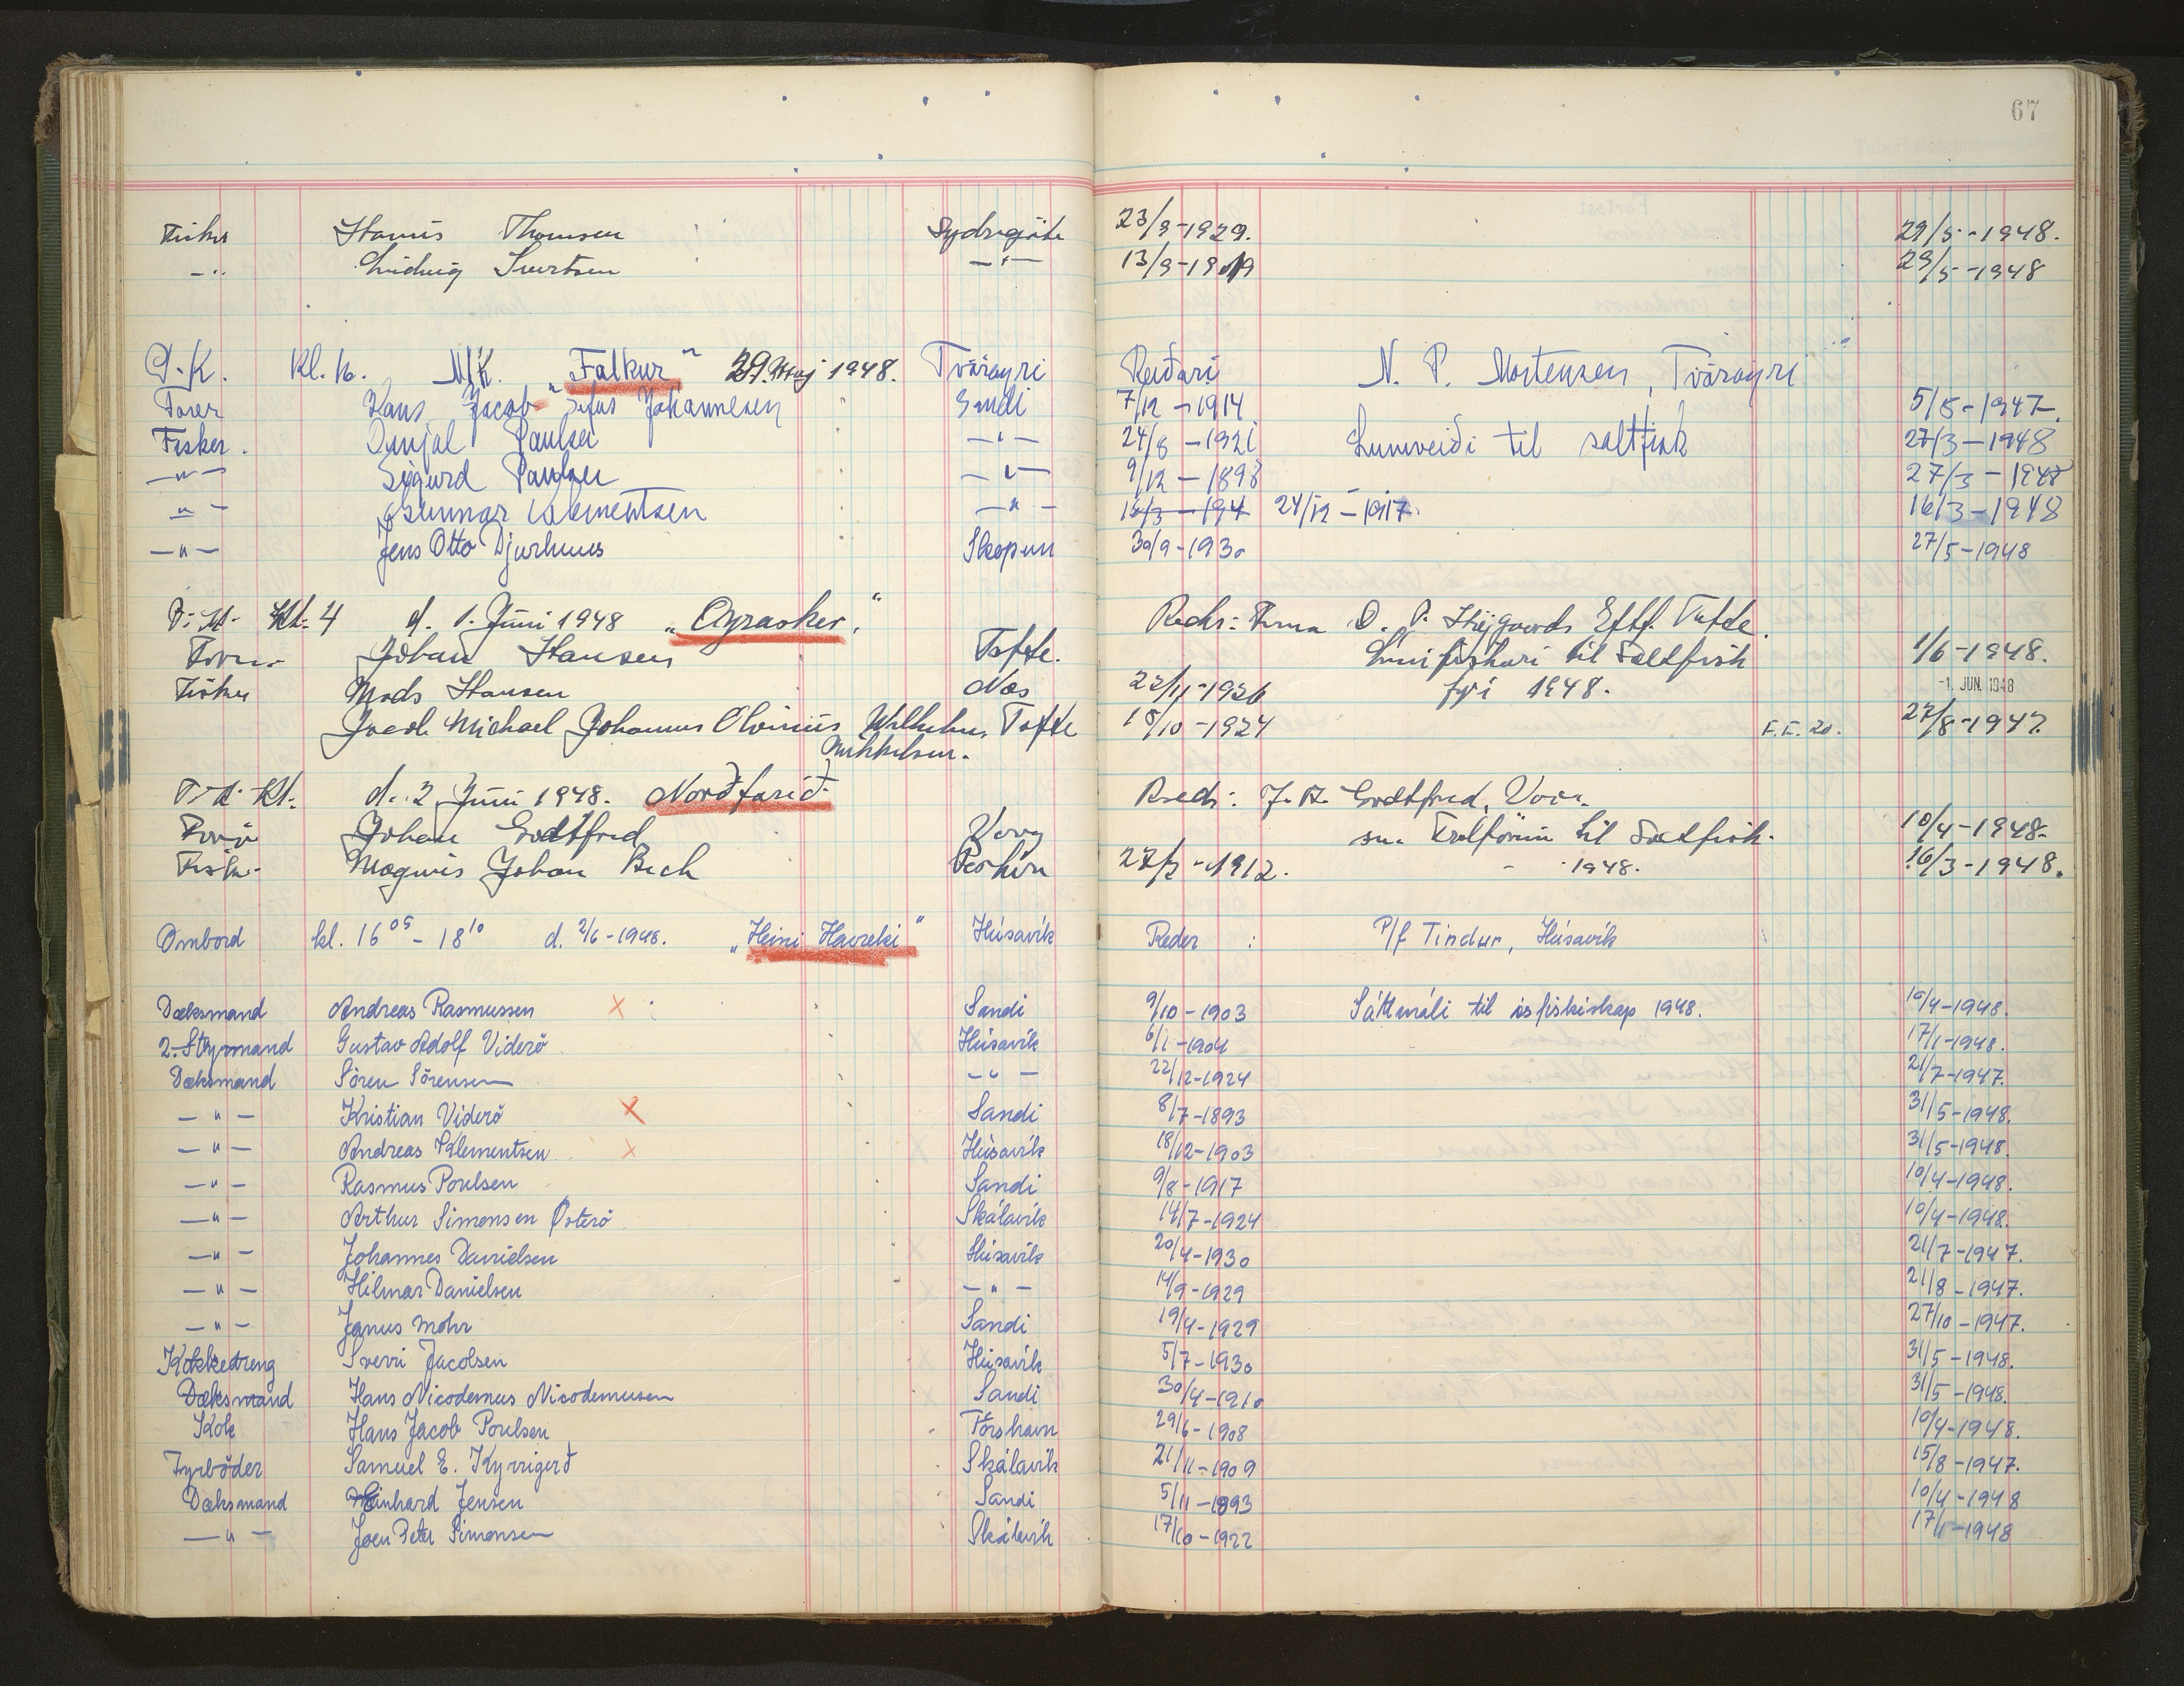 67
Fisker Hanus Thomsen Sydrugöte 23/9-1929. 29/5-1948.
-"- Ludvig Sivertsen -"- 13/9-1919 29/5-1948
P.K. Kl. 16. M/K. "Falkur" 29. Maj 1948. Tvöroyri Reiðari N. P. Mortensen, Tvöroyri
Fører Hans Jacob Johannesen Sandi 7/12-1914 5/8-1947
Fisker. Paulsen -"- 24/8-1921 Lumveiði til saltfisk 27/3-1948
-"- Sigurd Paulsen -"- 9/12-1898 27/3-1948
-"- Gunnar Klementsen -"- 24/12-1917. 16/3-1948
-"- Jens Otto Djurhuus Skopun 30/9-1930 27/5-1948
Kl. 4 d. 1. Juni 1948 "Oyrasker" Redr: Firma O. P. Højgaards Eftf. Tofte.
Johan Hansen Tofte. til Saltfisk 1/6-1948.
Fisker Mads Hansen Næs 22/11-1926 1948. -1. JUN. 1948
Jacob Michael Johannus Olvinius Wilhelm Tofte 18/10-1924 F.E. 20. 27/8-1947.
Mikkelsen.
Kl. d. 2 Juni 1948. Norðfarið Redr: J. A. Godtfred, Vaag.
Johan Godtfred Vaag til Saltfisk. 10/4-1948.
Fisker Magnus Johan Bech 27/3-1912. - 1948. 16/3-1948.
Ombord kl. 16 05 - 18 10 d. 2/6-1948. "Heini Havreki" Húsavík Reder: P/f Tindur, Húsavík
Dæksmand Andreas Rasmussen X Sandi 9/10-1903 Sáttmáli til ísfiskiskap 1948. 10/4-1948.
2. Styrmand Gustav Adolf Viderö Húsavík 6/1-1904 17/1-1948.
Dæksmand Sören Sörensen -"- 22/12-1924 21/7-1947.
-"- Kristian Viderö X Sandi 8/7-1893 31/5-1948.
-"- Andreas Klementsen X Húsavík 18/12-1903 31/5-1948.
-"- Rasmus Poulsen Sandi 9/8-1917 10/4-1948.
-"- Arthur Simonsen Østerö Skálavík 14/7-1924 10/4-1948.
-"- Johannes Danielsen Húsavík 20/4-1930 21/7-1947.
-"- Hilmar Danielsen -"- 14/9-1929 21/8-1947.
-"- Janus Mohr Sandi 19/4-1929 27/10-1947.
Kokkedreng Sverri Jacobsen Húsavík 5/7-1930 31/5-1948.
Dæksmand Hans Nicodemus Nicodemusen Sandi 30/4-1910 31/5-1948.
Kok Hans Jacob Poulsen Tórshavn 29/6-1908 10/4-1948.
Fyrböder Samuel E. Kyrrigerð Skálavík 21/11-1909 15/8-1947.
Dæksmand Meinhard Jensen Sandi 5/11-1893 10/4-1948
-"- Joen Peter Simonsen Skálavík 17/10-1922 17/1-1948